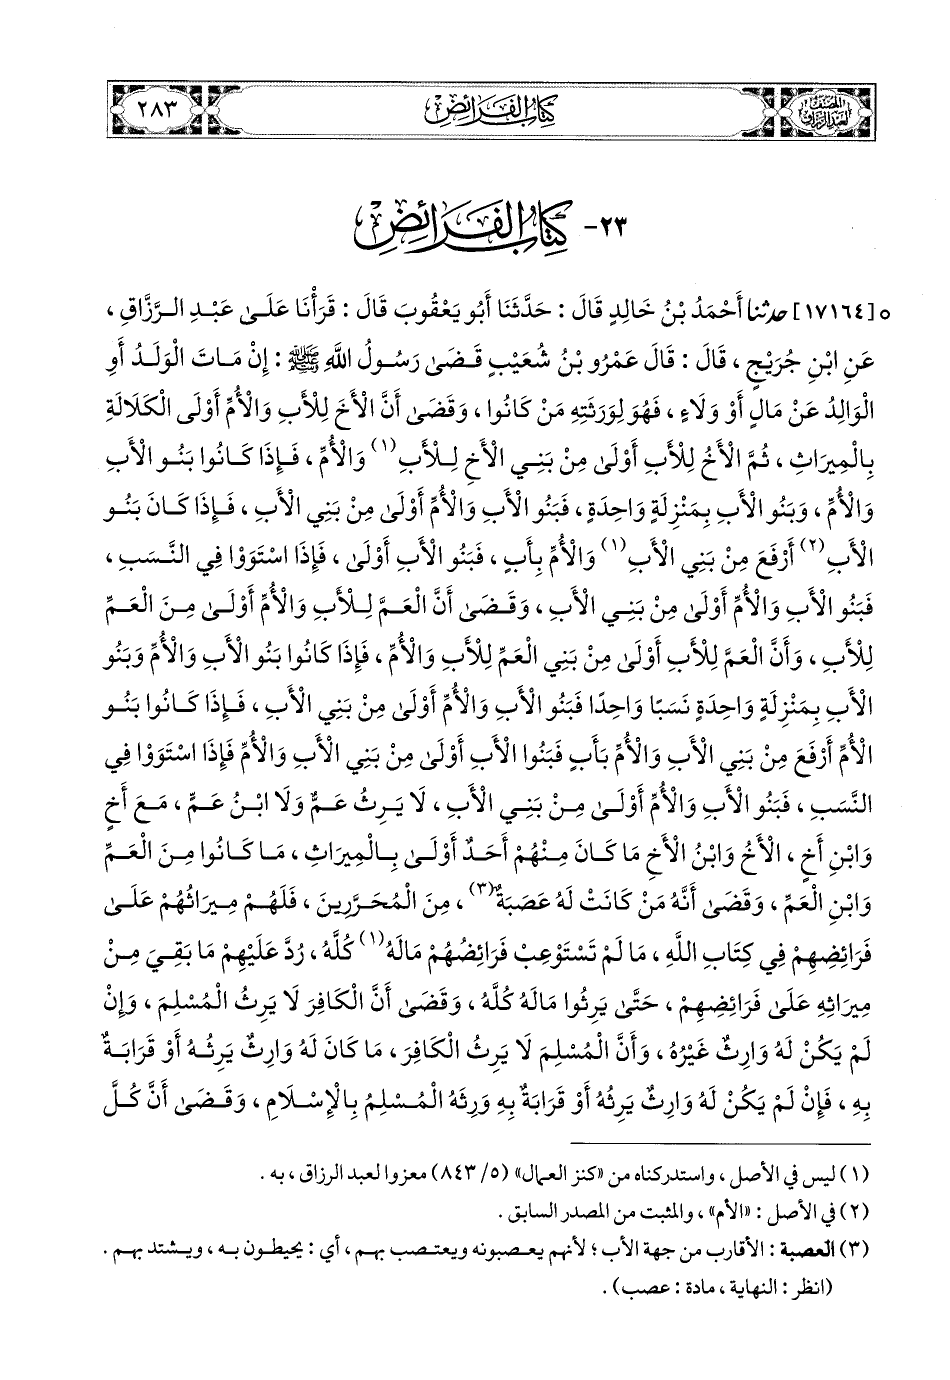 المصنف لعبد الرزاق
كتاب الفرائض
٢٨٣
٢٣- كتاب الفرائض
٥ [١٧١٦٤] حدثنا أَحْمَدُ بْنُ خَالِدٍ قَالَ : حَدَّثَنَا أَبُو يَعْقُوبَ قَالَ : قَرَأْنَا عَلَىٰ عَبْدِ الرَّزَّاقِ ،
عَنِ ابْنِ جُرَيْجٍ ، قَالَ : قَالَ عَمْرُو بْنُ شُعَيْبٍ قَضَىٰ رَسُولُ اللَّهِ ﷺ : إِنْ مَاتَ الْوَلَدُ أَوِ
الْوَالِدُ عَنْ مَالٍ أَوْ وَلَاءٍ ، فَهُوَ لِوَرَثَتِهِ مَنْ كَانُوا ، وَقَضَىٰ أَنَّ الْأَخَ لِلْأَبِ وَالْأُمِّ أَوْلَىٰ الْكَلَالَةِ
بِالْمِيرَاثِ ، ثُمَّ الْأَخُ لِلْأَبِ أَوْلَىٰ مِنْ بَنِي الْأَخِ لِلْأَبِ (١) وَالْأُمِّ ، فَإِذَا كَانُوا بَنُو الْأَبِ
وَالْأُمِّ ، وَبَنُو الْأَبِ بِمَنْزِلَةٍ وَاحِدَةٍ ، فَبَنُو الْأَبِ وَالْأُمِّ أَوْلَىٰ مِنْ بَنِي الْأَبِ ، فَإِذَا كَانَ بَنُو
الْأَبِ (٢) أَرْفَعَ مِنْ بَنِي الْأَبِ (١) وَالْأُمِّ بِأَبٍ ، فَبَنُو الْأَبِ أَوْلَىٰ ، فَإِذَا اسْتَوَوْا فِي النَّسَبِ ،
فَبَنُو الْأَبِ وَالْأُمِّ أَوْلَىٰ مِنْ بَنِي الْأَبِ ، وَقَضَىٰ أَنَّ الْعَمَّ لِلْأَبِ وَالْأُمِّ أَوْلَىٰ مِنَ الْعَمِّ
لِلْأَبِ ، وَأَنَّ الْعَمَّ لِلْأَبِ أَوْلَىٰ مِنْ بَنِي الْعَمِّ لِلْأَبِ وَالْأُمِّ ، فَإِذَا كَانُوا بَنُو الْأَبِ وَالْأُمِّ وَبَنُو
الْأَبِ بِمَنْزِلَةٍ وَاحِدَةٍ نَسَبًا وَاحِدًا فَبَنُو الْأَبِ وَالْأُمِّ أَوْلَىٰ مِنْ بَنِي الْأَبِ ، فَإِذَا كَانُوا بَنُو
الْأُمِّ أَرْفَعَ مِنْ بَنِي الْأَبِ وَالْأُمِّ بَأَبٍ فَبَنُوا الْأَبِ أَوْلَىٰ مِنْ بَنِي الْأَبِ وَالْأُمِّ فَإِذَا اسْتَوَوْا فِي
النَّسَبِ ، فَبَنُو الْأَبِ وَالْأُمِّ أَوْلَىٰ مِنْ بَنِي الْأَبِ ، لَا يَرِثُ عَمٌّ وَلَا ابْنُ عَمٍّ ، مَعَ أَخٍ
وَابْنِ أَخٍ ، الْأَخُ وَابْنُ الْأَخِ مَا كَانَ مِنْهُمْ أَحَدٌ أَوْلَىٰ بِالْمِيرَاثِ ، مَا كَانُوا مِنَ الْعَمِّ
وَابْنِ الْعَمِّ ، وَقَضَىٰ أَنَّهُ مَنْ كَانَتْ لَهُ عَصَبَةٌ (٣) ، مِنَ الْمُحَرَّرِينَ ، فَلَهُمْ مِيرَاثُهُمْ عَلَىٰ
فَرَائِضِهِمْ فِي كِتَابِ اللَّهِ ، مَا لَمْ تَسْتَوْعِبْ فَرَائِضُهُمْ مَالَهُ (١) كُلَّهُ ، رُدَّ عَلَيْهِمْ مَا بَقِيَ مِنْ
مِيرَاثِهِ عَلَىٰ فَرَائِضِهِمْ ، حَتَّىٰ يَرِثُوا مَالَهُ كُلَّهُ ، وَقَضَىٰ أَنَّ الْكَافِرَ لَا يَرِثُ الْمُسْلِمَ ، وَإِنْ
لَمْ يَكُنْ لَهُ وَارِثٌ غَيْرُهُ ، وَأَنَّ الْمُسْلِمَ لَا يَرِثُ الْكَافِرَ ، مَا كَانَ لَهُ وَارِثٌ يَرِثُهُ أَوْ قَرَابَةٌ
بِهِ ، فَإِنْ لَمْ يَكُنْ لَهُ وَارِثٌ يَرِثُهُ أَوْ قَرَابَةٌ بِهِ وَرِثَهُ الْمُسْلِمُ بِالْإِسْلَامِ ، وَقَضَىٰ أَنَّ كُلَّ
(١) ليس في الأصل ، واستدركناه من «كنز العمال» (٥/ ٨٤٣) معزوا لعبد الرزاق ، به .
(٢) في الأصل : «الأم» ، والمثبت من المصدر السابق .
(٣) العصبة : الأقارب من جهة الأب ؛ لأنهم يعصبونه ويعتصب بهم ، أي : يحيطون به ، ويشتد بهم .
(انظر : النهاية ، مادة : عصب) .